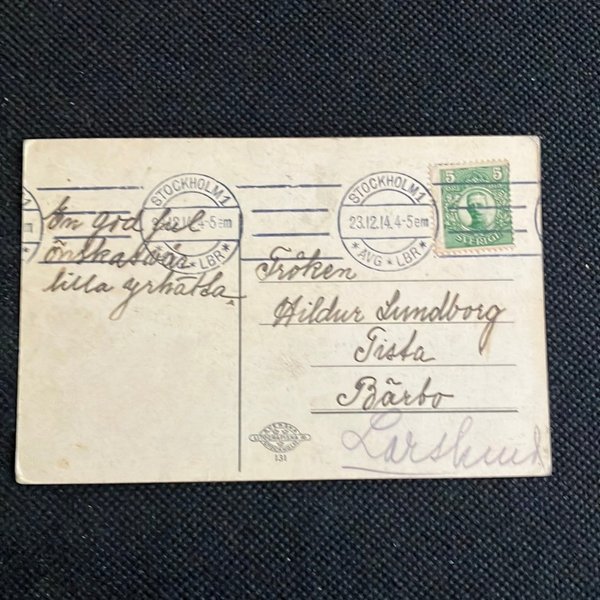 STOCKHOLM 1
23.12.14. 4-5 em
* AVG * LBR *
STOCKHOLM 1
23.12.14. 4-5 em
* AVG * LBR *
5 5
SVERIGE
En god jul
Önskas
lilla yrhätta
Fröken
Hildur Lundborg
Tista
Bärbo
Larslund
131